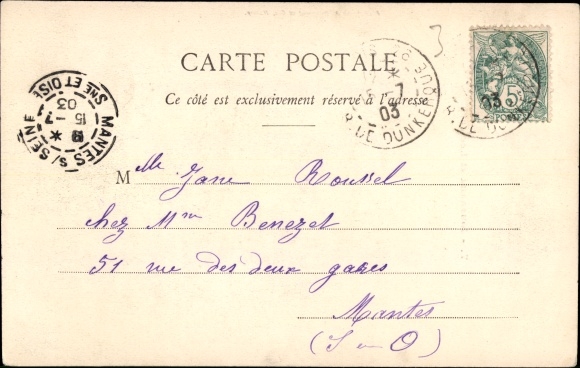 CARTE POSTALE
Ce côté est exclusivement réservé à l'adresse
Mlle Jane Roussel
chez Mme Benezet
51 rue des deux gares
Mantes
(S en O)
MANTES S/ SEINE
SNE ET OISE
15 - 7
03
R. DE DUNKERQUE
7
03
R. DE DUNKERQUE
03
5c
POSTES
3